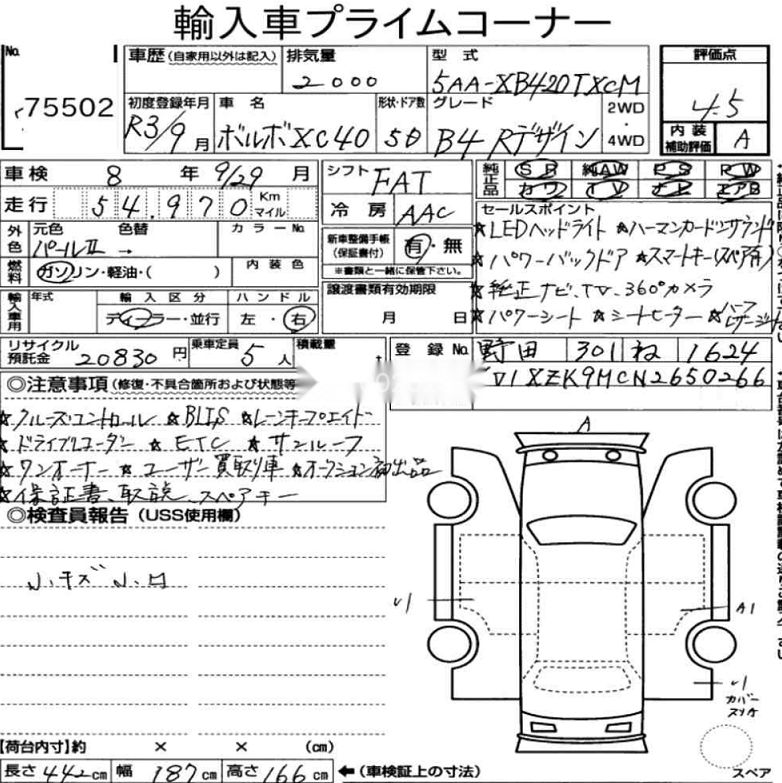 輸入車プライムコーナー
No.
75502
車歴 (自家用以外は記入)
排気量
2000
型式
5AA-XB420TXCM
評価点
4.5
初度登録年月
R3/9月
車名
ボルボXC40
形状・ドア数
5D
グレード
B4 Rデザイン
2WD
4WD
内装補助評価
A
車検 8年 9/29月
走行 54,970 Km マイル
シフト FAT
冷房 AAC
純正品 SR 純AW PS PW
カワ TV ナビ エアB
外色 元色 パールII
色替 →
カラーNo.
内装色
燃料 ガソリン・軽油・( )
新車整備手帳 (保証書付) 有・無
※書類と一緒に保管下さい。
セールスポイント
★LEDヘッドライト ★ハーマンカードンサウンド
★パワーバックドア ★スマートキー(スペア有)
★純正ナビ、TV、360°カメラ
★パワーシート ★シートヒーター ★ハーフ
輸入車用 年式
輸入区分 ディーラー・並行
ハンドル 左・右
譲渡書類有効期限
月 日
リサイクル預託金 20830円
乗車定員 5人
積載量 t
登録No. 野田 301 ね 1624
YV1XZK9MCN2650266
◎注意事項 (修復・不具合箇所および状態等
★クルーズコントロール ★BLIS ★レーンキープエイド
★ドライブレコーダー ★ETC ★サンルーフ
★ワンオーナー ★ユーザー買取り車 ★オークション初出品
★保証書、取説、スペアキー
◎検査員報告 (USS使用欄)
小キズ 小凹
A
A1
カバー
スリキ
スペア
【荷台内寸】約 × × (cm)
長さ 442cm 幅 187cm 高さ 166cm ←(車検証上の寸法)